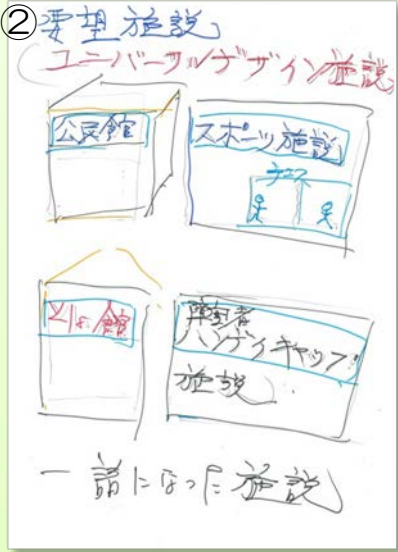 ②要望施説
(ユニバーサルデザイン施説
公民館
スポーツ施説
テニス
としょ館
障害者
ハンディキャップ
施説
一諸になった施説